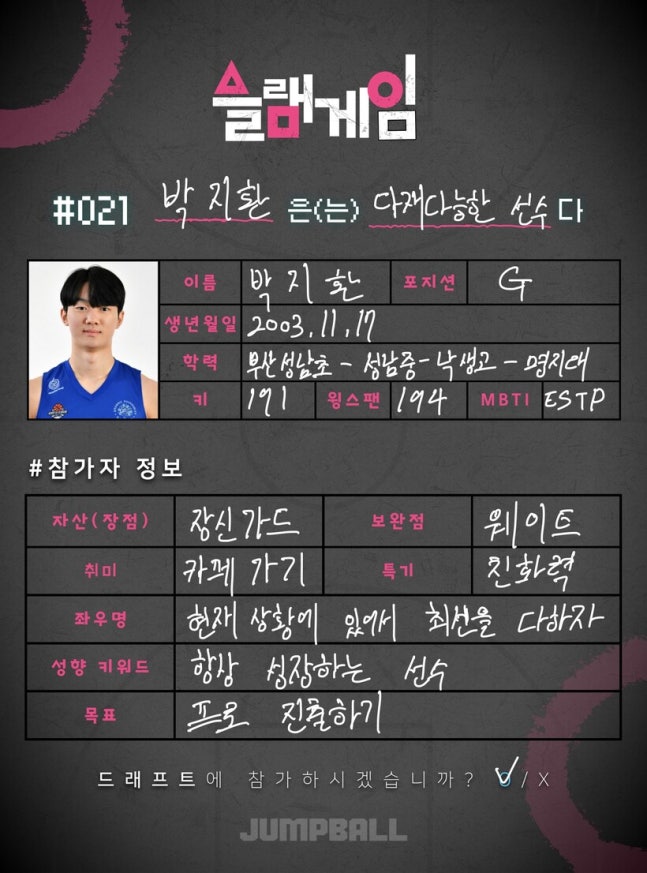 슬램게임
#021 박지환 은(는) 다재다능한 선수 다
이름 박지환 포지션 G
생년월일 2003.11.17
학력 부산성남초 - 성남중 - 낙생고 - 명지대
키 191 윙스팬 194 MBTI ESTP
#참가자 정보
자산(장점) 장신가드 보완점 웨이트
취미 카페 가기 특기 친화력
좌우명 현재 상황에 있어서 최선을 다하자
성향 키워드 항상 성장하는 선수
목표 프로 진출하기
드래프트에 참가하시겠습니까? O/X
JUMPBALL